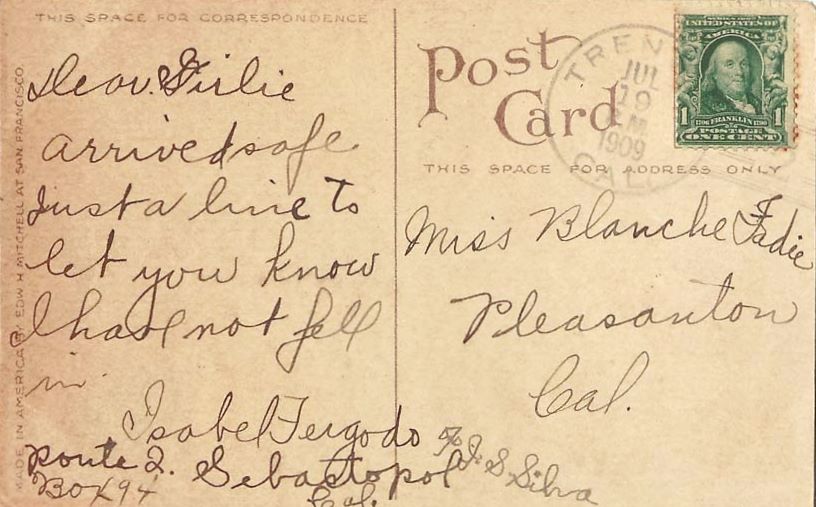 THIS SPACE FOR CORRESPONDENCE
Dear Girlie
arrived safe
Just a line to
let you know
I have not fell
in.
Isabel Fergodo
Route 2. Sebastopol
Box 94 Cal.
% J. S Silva
MADE IN AMERICA BY EDW H MITCHELL AT SAN FRANCISCO.
Post
Card
TREN
JUL
19
1909
CAL
SERIES 1902
UNITED STATES OF
AMERICA
1 1706 FRANKLIN 1790 1
POSTAGE
ONE CENT
THIS SPACE FOR ADDRESS ONLY
Miss Blanche Fadie
Pleasanton
Cal.